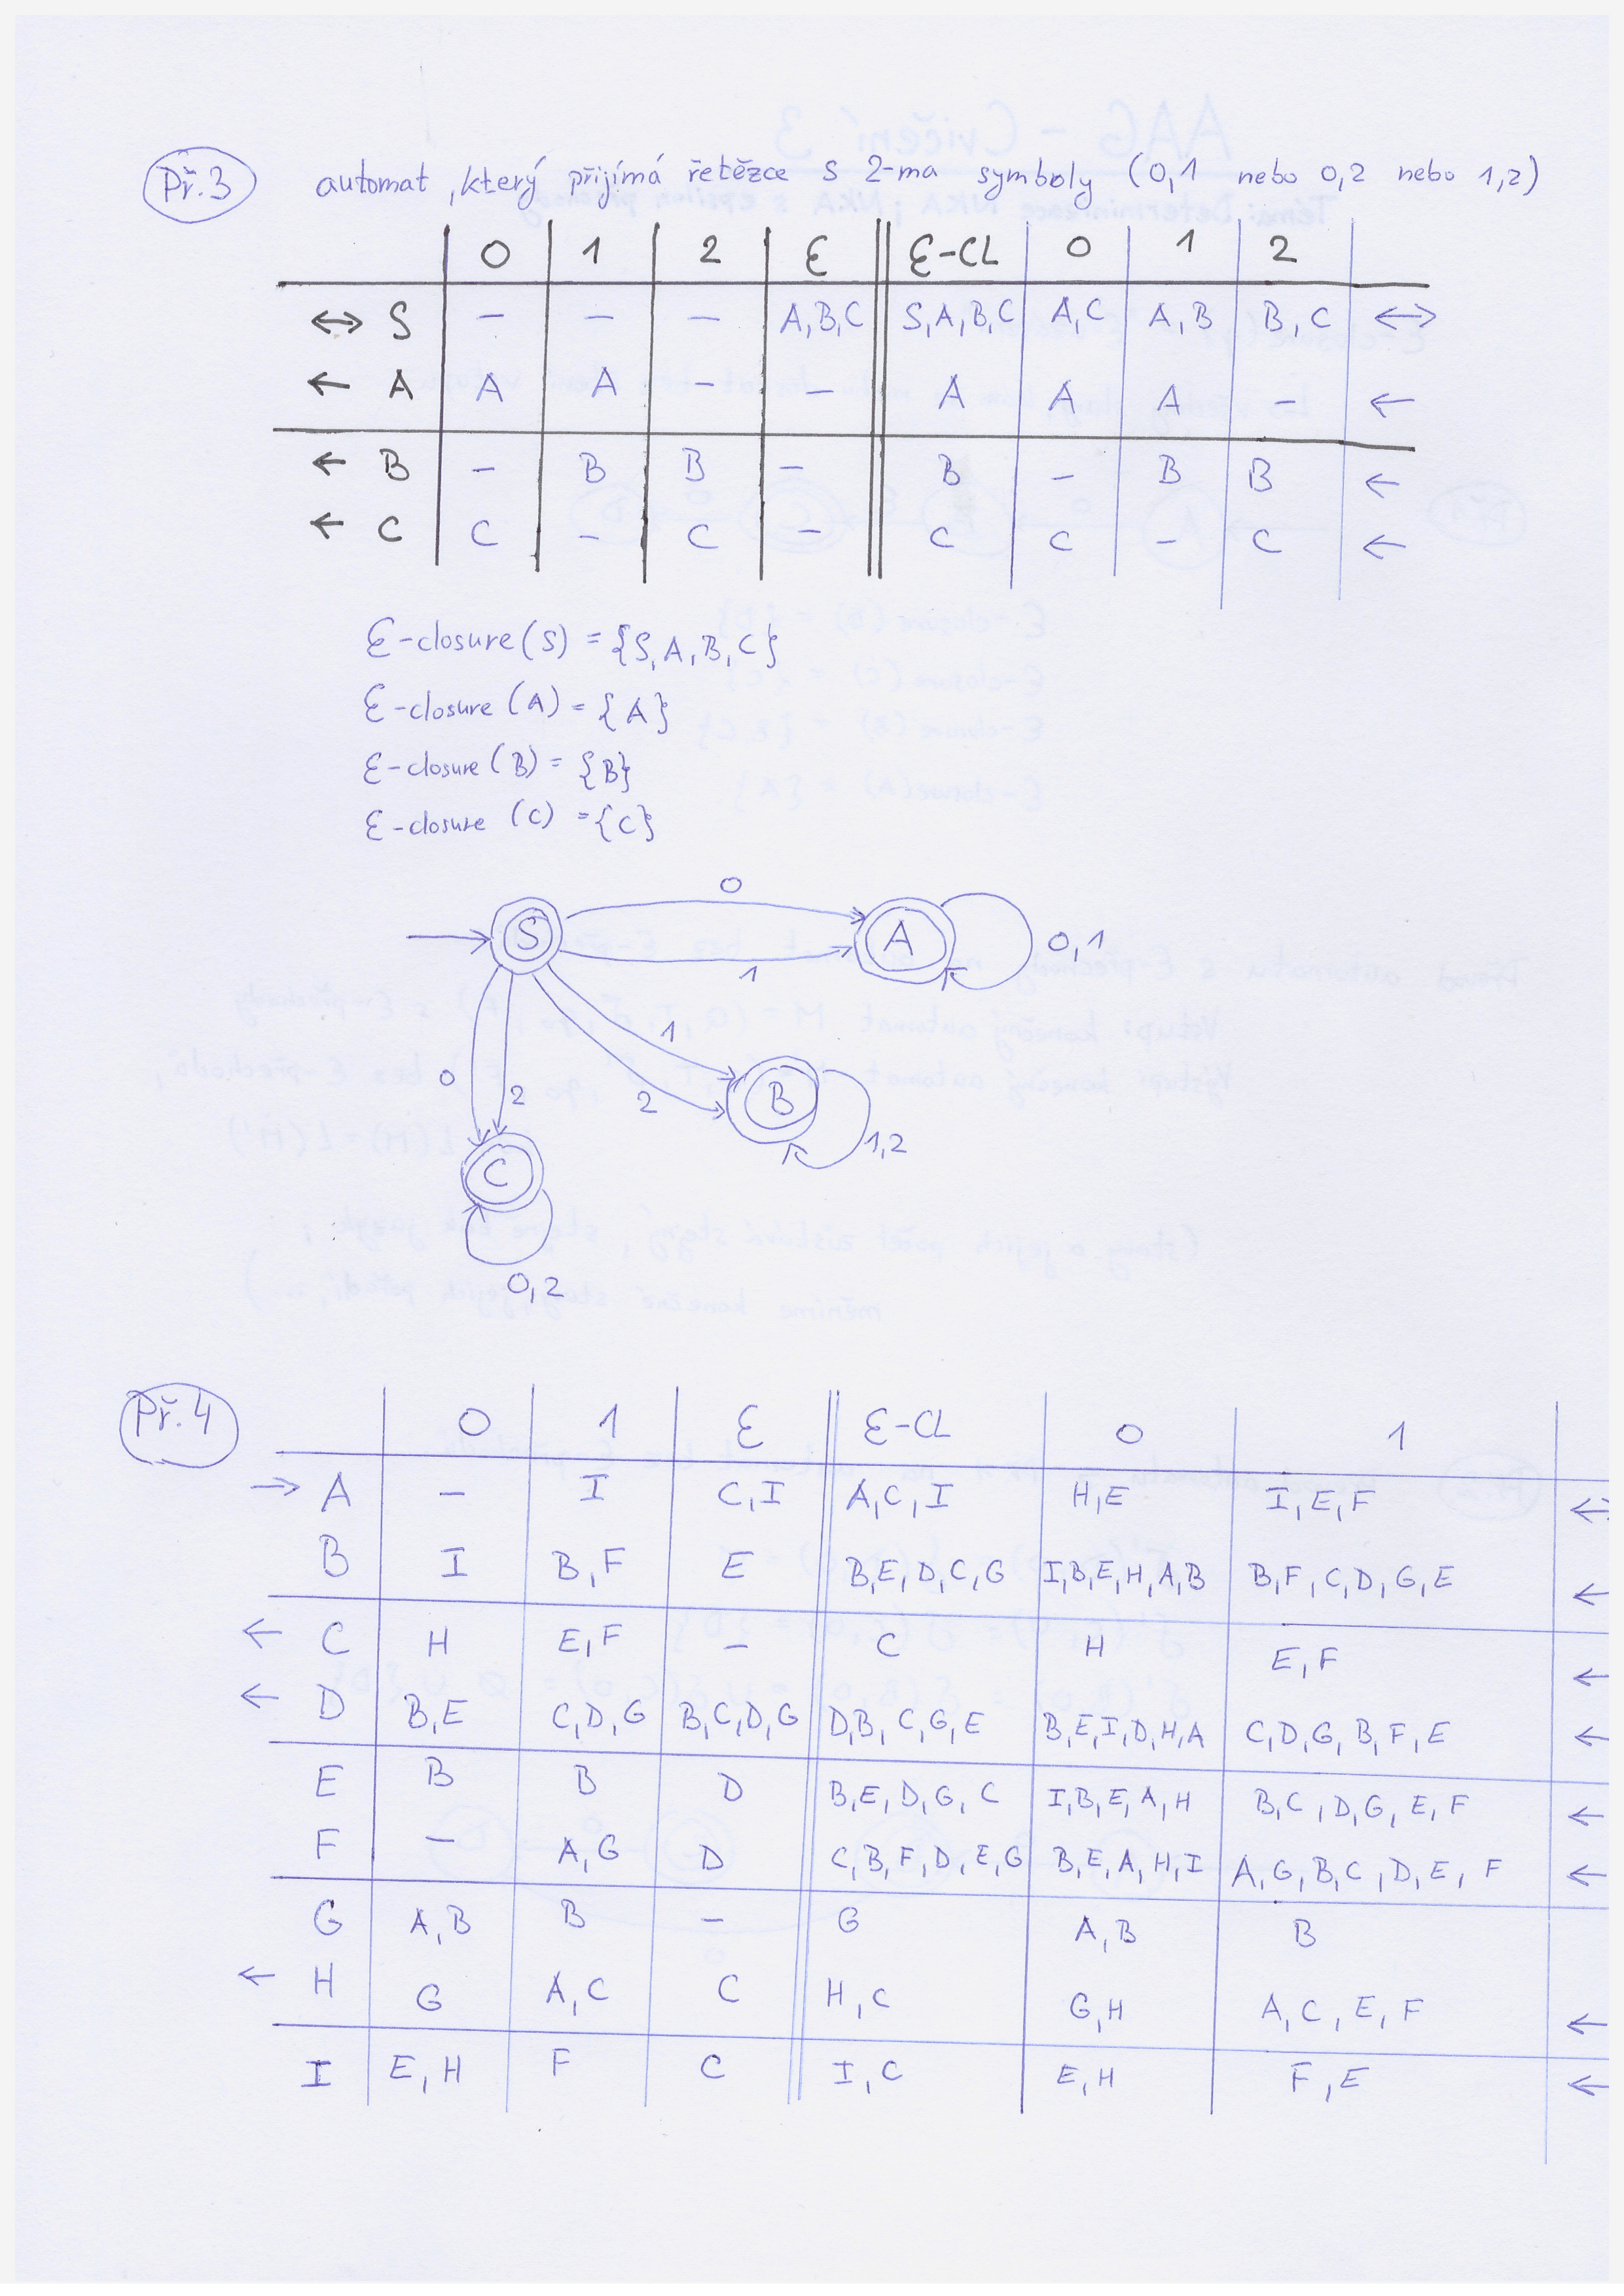 Př.3 automat, který přijímá řetězce s 2-ma symboly (0,1 nebo 0,2 nebo 1,2)
0 1 2 ε ε-CL 0 1 2
↔ S – – – A,B,C S,A,B,C A,C A,B B,C ↔
← A A A – – A A A – ←
← B – B B – B – B B ←
← C C – C – C C – C ←
ε-closure(S) = {S,A,B,C}
ε-closure (A) = {A}
ε-closure (B) = {B}
ε-closure (C) = {C}
0
S A 0,1
1
1
0 2 2 B
1,2
C
0,2
Př.4 0 1 ε ε-CL 0 1
→ A – I C,I A,C,I H,E I,E,F ↔
B I B,F E B,E,D,C,G I,B,E,H,A,B B,F,C,D,G,E ←
← C H E,F – C H E,F ←
← D B,E C,D,G B,C,D,G D,B,C,G,E B,E,I,D,H,A C,D,G,B,F,E ←
E B B D B,E,D,G,C I,B,E,A,H B,C,D,G,E,F ←
F – A,G D C,B,F,D,E,G B,E,A,H,I A,G,B,C,D,E,F ←
G A,B B – G A,B B
← H G A,C C H,C G,H A,C,E,F ←
I E,H F C I,C E,H F,E ←